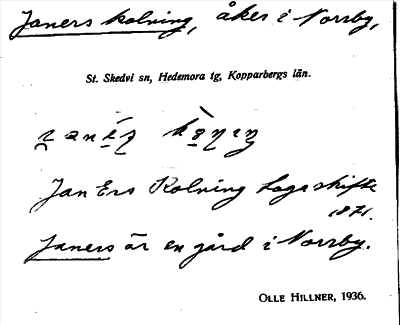 Janers kolning, åker i Norrby,
St. Skedvi sn, Hedemora tg, Kopparbergs län.
Jan Ers Kolning Laga skifte
1871.
Janers är en gård i Norrby.
OLLE HILLNER, 1936.